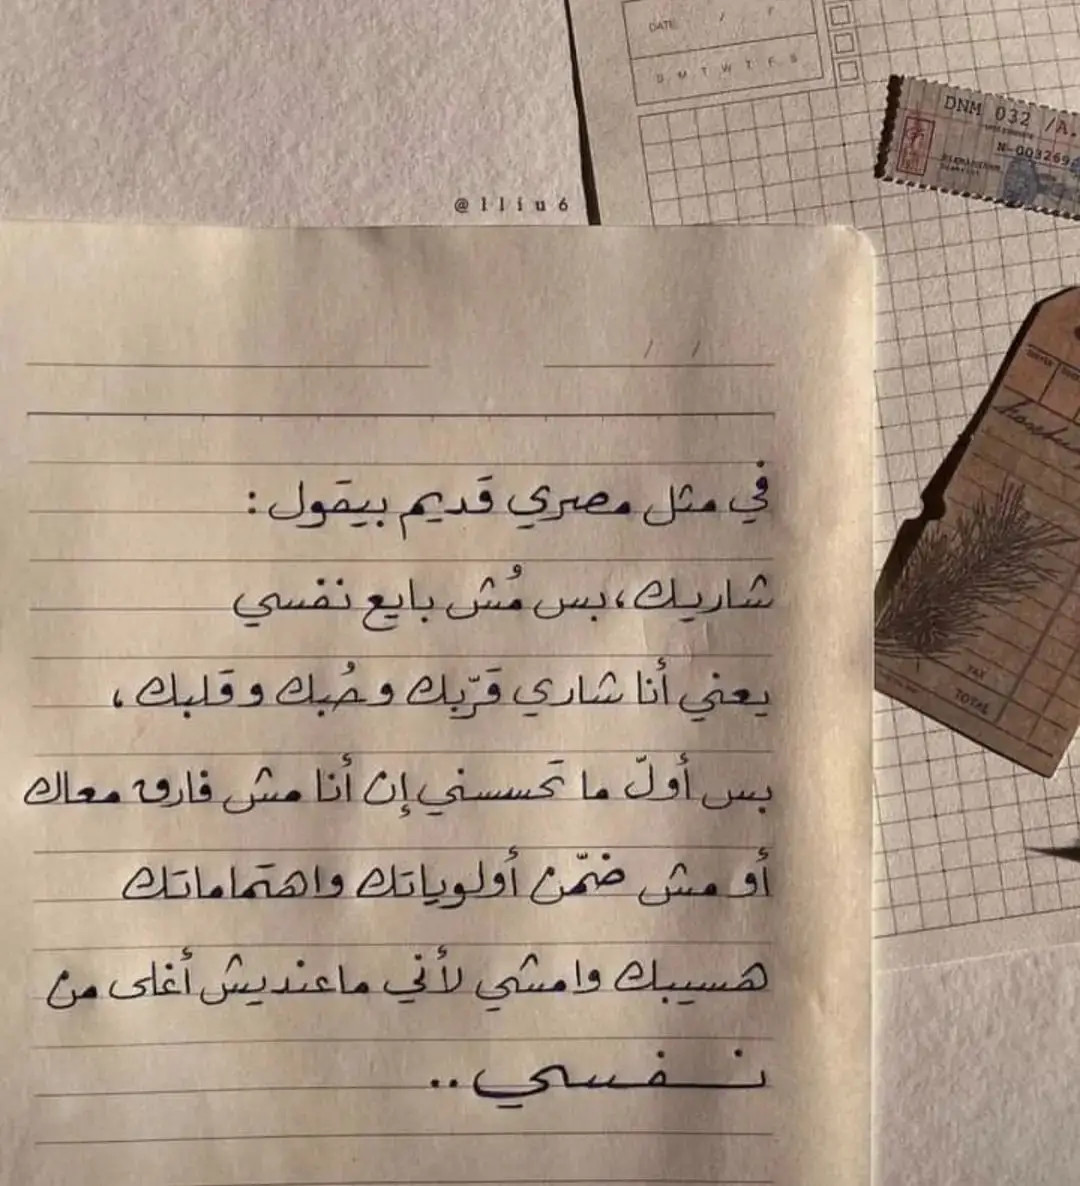 DATE: / /
S M T W T F S
DNM 032 /A.
N-003269
@lliu6
/ /
في مثل مصري قديم بيقول :
شاريك، بس مُش بايع نفسي
يعني أنا شاري قرّبك وحُبك وقلبك ،
بس أولّ ما تحسسني إن أنا مش فارق معاك
أو مش ضمّن أولوياتك واهتماماتك
هسيبك وامشي لأني ماعنديش أغلى من
نفسي ..
TAX
TOTAL